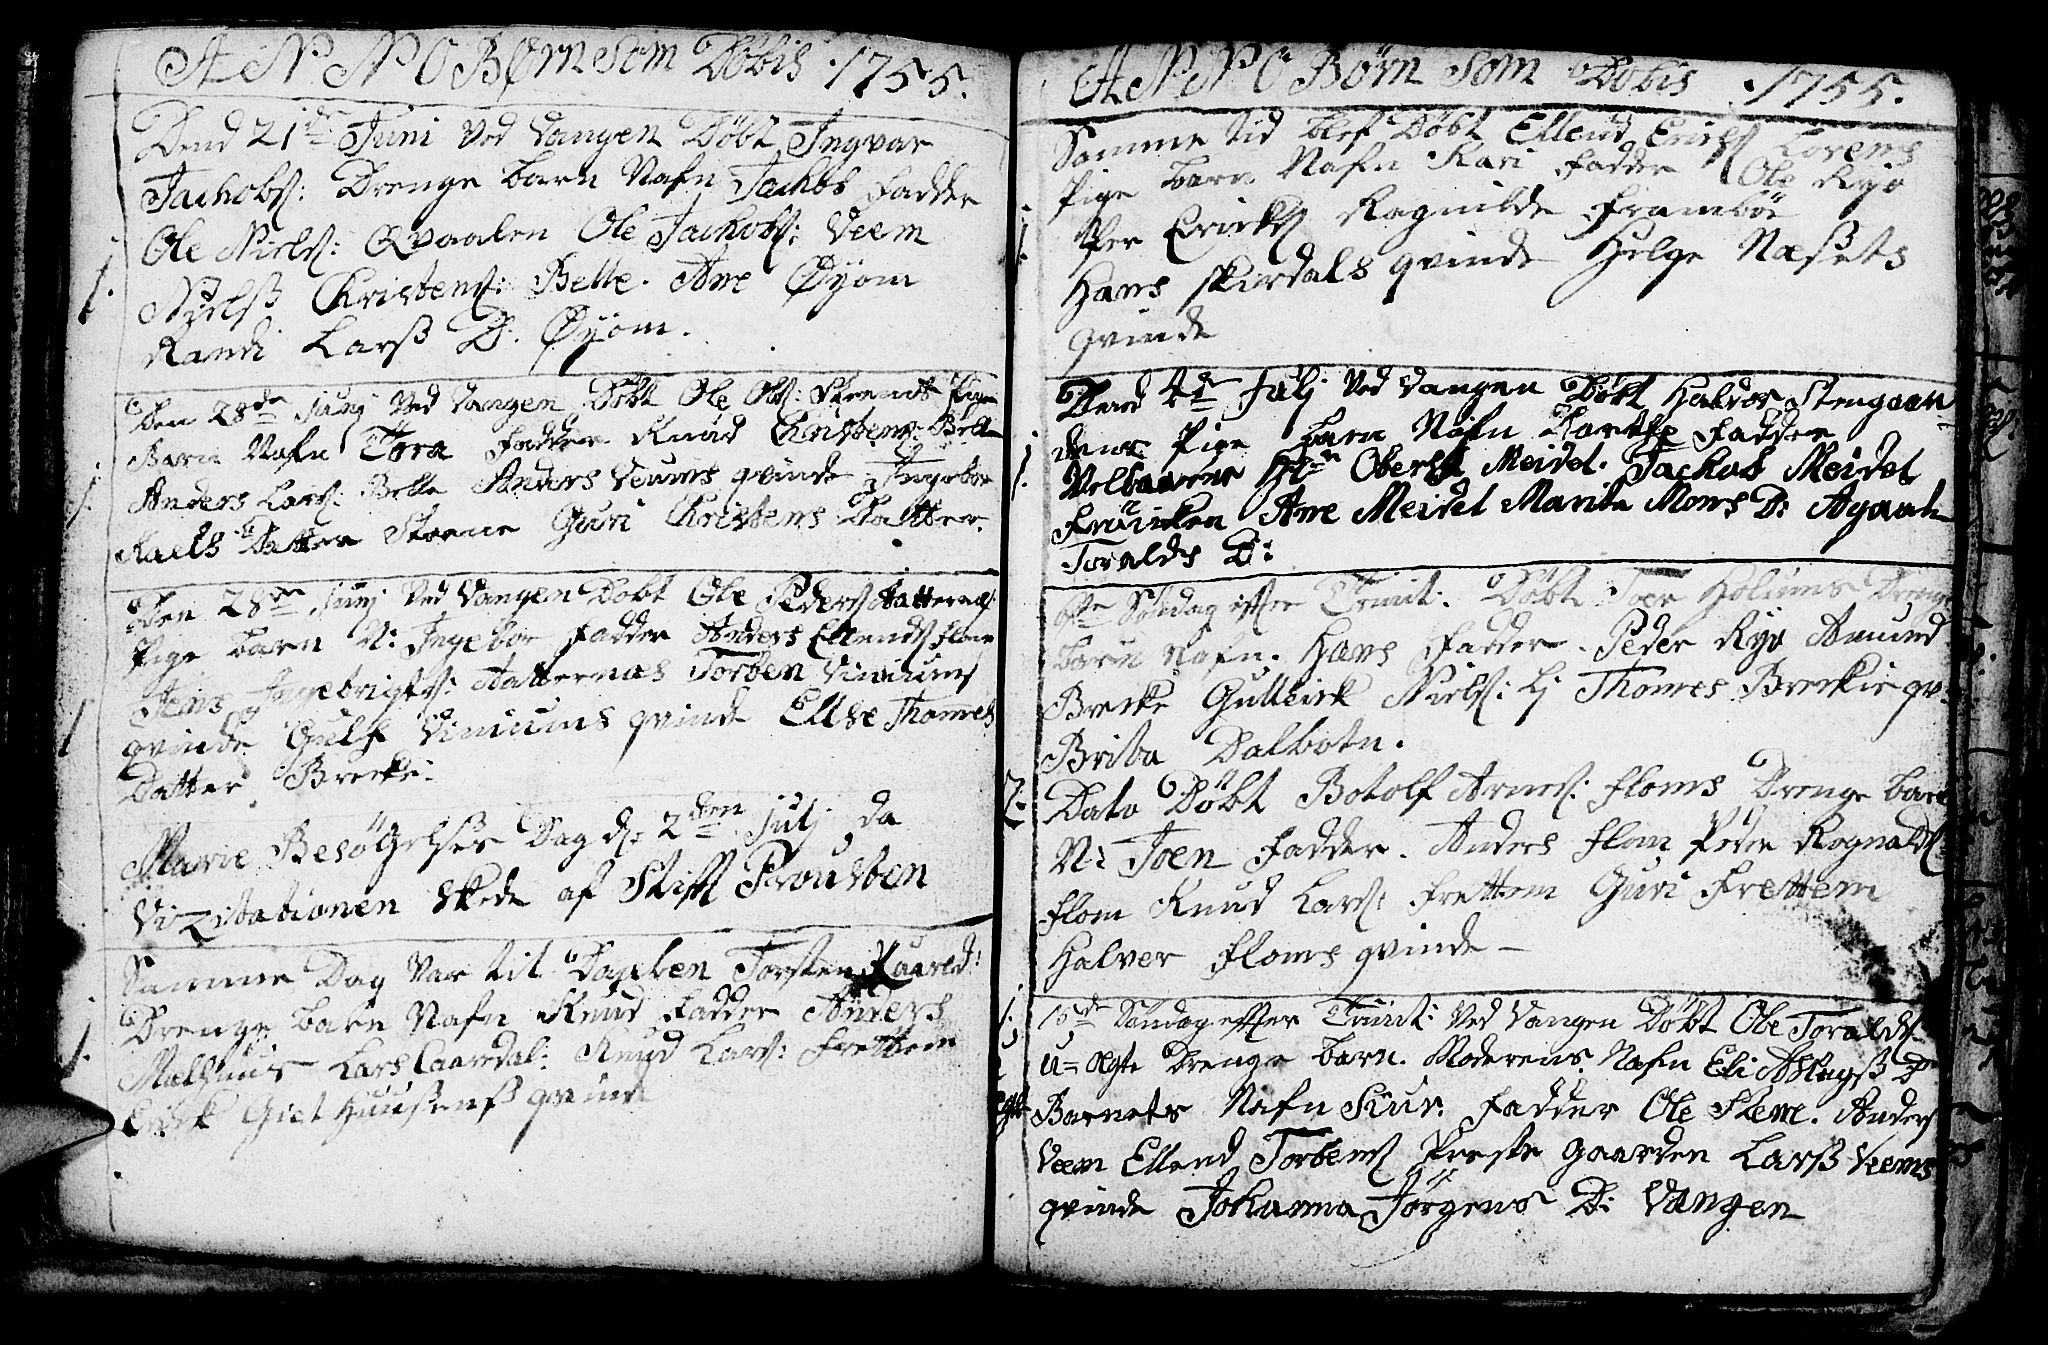 ANNO Børn Som Döbis. 1755.
Dend 21de Juni Ved Vangen Döbt Ingvar
Jachobs: Drenge barn Nafn Jachob Fadder
Ole Niels: Qvaalen Ole Jachobs: Veem
Nielß Christens: Belle. Ane Øyom
1.
Randi Larß D: Øyom.
Den 28de Junj Ved Vangen Döbt Ole Ols:
Barn Nafn Tora Fadder Knud Christens: Belle
Anders Lars: Belle Anders Veums qvinde Ingebor
1.
Datter Steene Guri Christens Datter.
Den 28de Junj Ved Vangen Döbt Ole Peders Atternæs
Pige barn N: Ingebor Fadder Anders Ellends Flom
Jens Ingebrigts: Atternæs Torben Viniums
1
qvinde Gulf Viniums qvinde Ellse Thomes
Datter Brecke.
Marie Besögelses Dag d: 2den Julj da
Vizitationen skede af Stift Provsten
Samme Dag Var til Daaben Torsten
Drenge barn Nafn Knud Fadder Anders
1.
Melhuus Lars Caardal: Knud Lars: Frettem
Erick qvinde
ANNO Börn Som Döbis. 1755.
Samme tid blef Döbt Ellend Ericks Lorens
Pige barn Nafn Kari Fadder Ole Ryo
1.
Per Ericks Ragnilde Framböe
Hans Skirdals qvinde Helge Næßets
qvinde
Dend 4de Julj Ved Vangen Döbt Halvor Stengaar
dens Pige barn Nafn Fadder
1.
Velbaarne Hr Oberst Meidel. Jachob Meidel
Früicken Ane Meidel Marite Mons D: Agaate
Toralds D:
6te Söndag efter Trinit: Döbt Joen Holums Drenge
barn Nafn. Hans Fadder. Peder Ryo Amund
Brecke Gulleick Niels: Lj Thomes Breckie qv:
Brita Dalbotn.
2.
Dato Döbt Botolf Arnes: Floms Drenge barn
N: Joen Fadder. Anders Flom Peder Rognalds
Flom Knud Lars: Frettem Guri Frettem
Halver Floms qvinde
1.
10de Söndag effter Trinit: Ved Vangen Döbt Ole Toralds.
U=ægte Drenge barn. Moderens. Nafn Eli Aslagß D
Barnets Nafn Siur: Fadder Ole Steme. Anders
Veem Ellend Torbens Preste gaarden Larß Veems
qvinde Johanna Jörgens D: Vangen